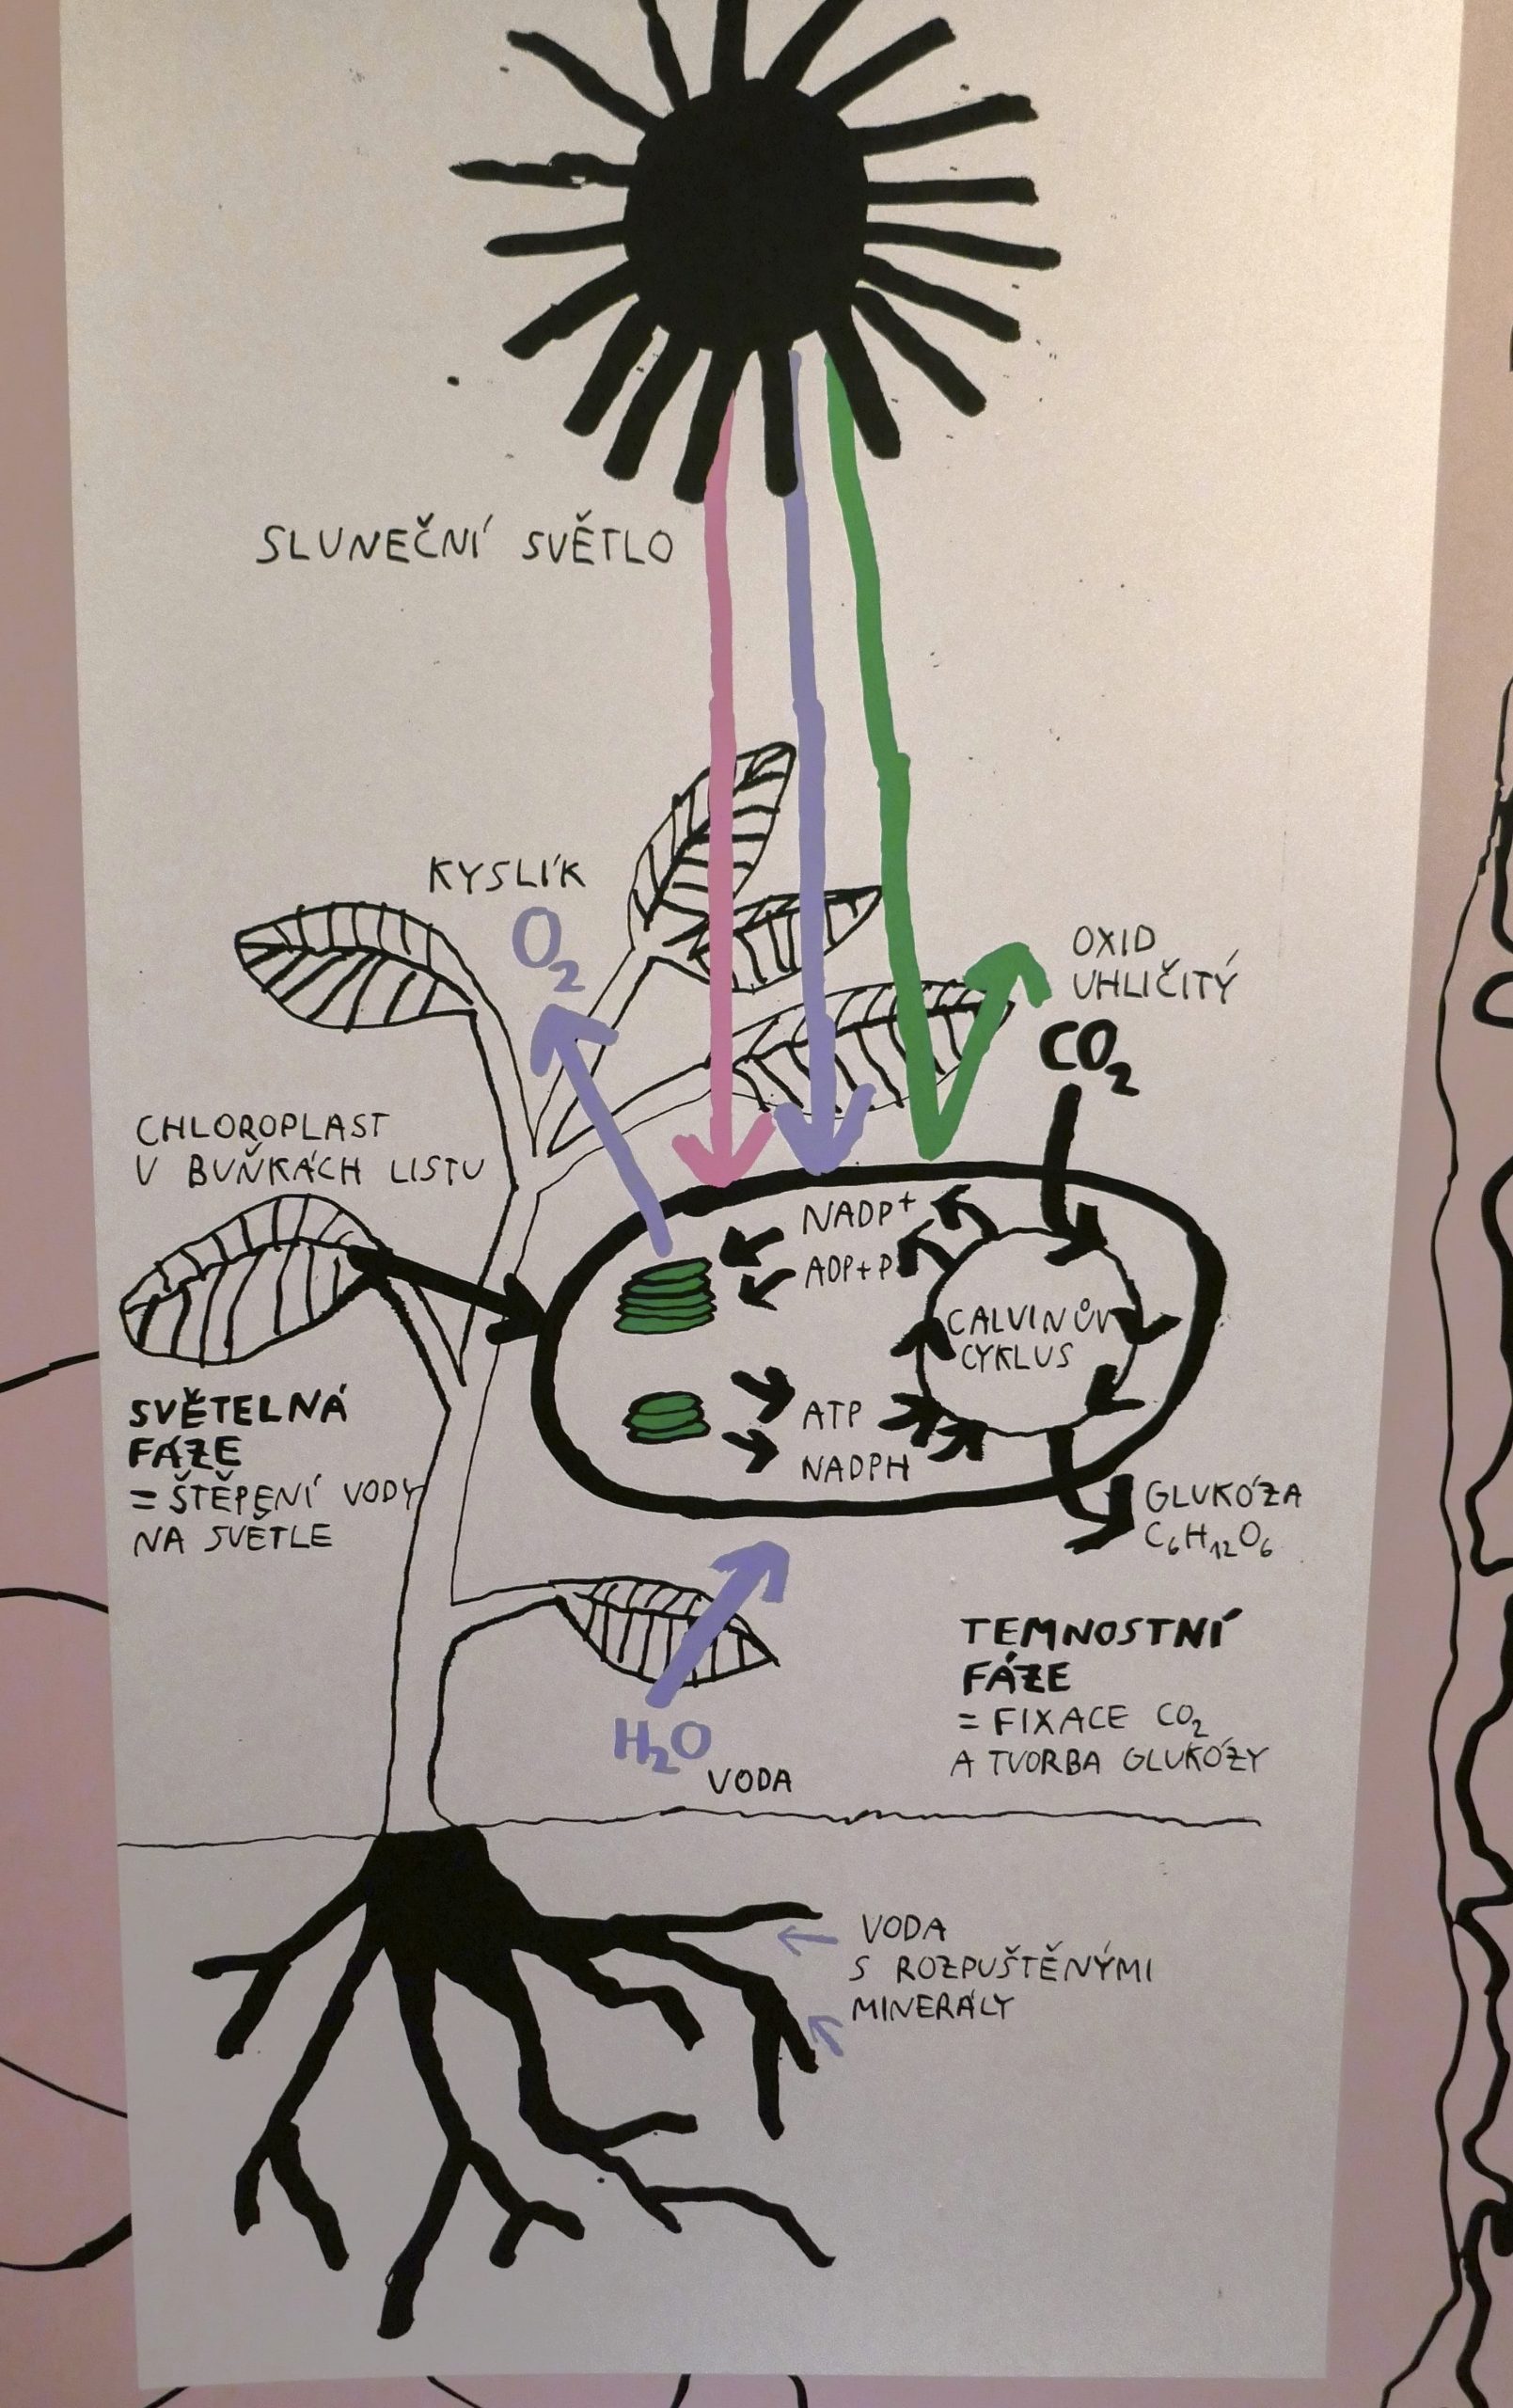 SLUNEČNÍ SVĚTLO
KYSLÍK
O₂
OXID
UHLIČITÝ
CO₂
CHLOROPLAST
V BUŇKÁCH LISTU
NADP+
ADP+P
CALVINŮV
CYKLUS
ATP
NADPH
SVĚTELNÁ
FÁZE
= ŠTĚPENÍ VODY
NA SVĚTLE
GLUKÓZA
C₆H₁₂O₆
TEMNOSTNÍ
FÁZE
= FIXACE CO₂
A TVORBA GLUKÓZY
H₂O
VODA
VODA
S ROZPUŠTĚNÝMI
MINERÁLY